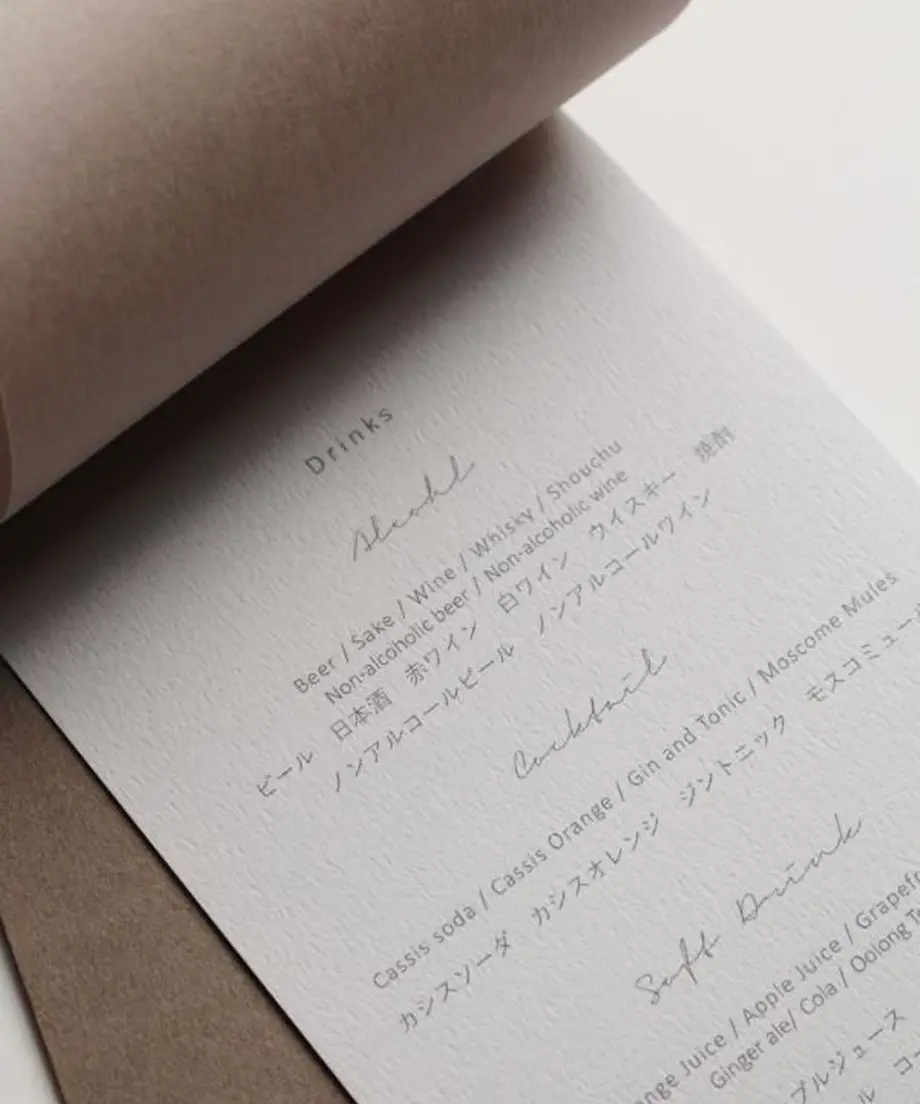 Drinks
Alcohl
Beer / Sake / Wine / Whisky / Shouchu
Non-alcoholic beer / Non-alcoholic wine
ビール 日本酒 赤ワイン 白ワイン ウイスキー 焼酎
ノンアルコールビール ノンアルコールワイン
Cocktail
Cassis soda / Cassis Orange / Gin and Tonic / Moscome Mules
カシスソーダ カシスオレンジ ジントニック モスコミュー
Soft Drink
ange Juice / Apple Juice / Grapefr
Ginger ale/ Cola / Oolong T
プルジュース
ル コー